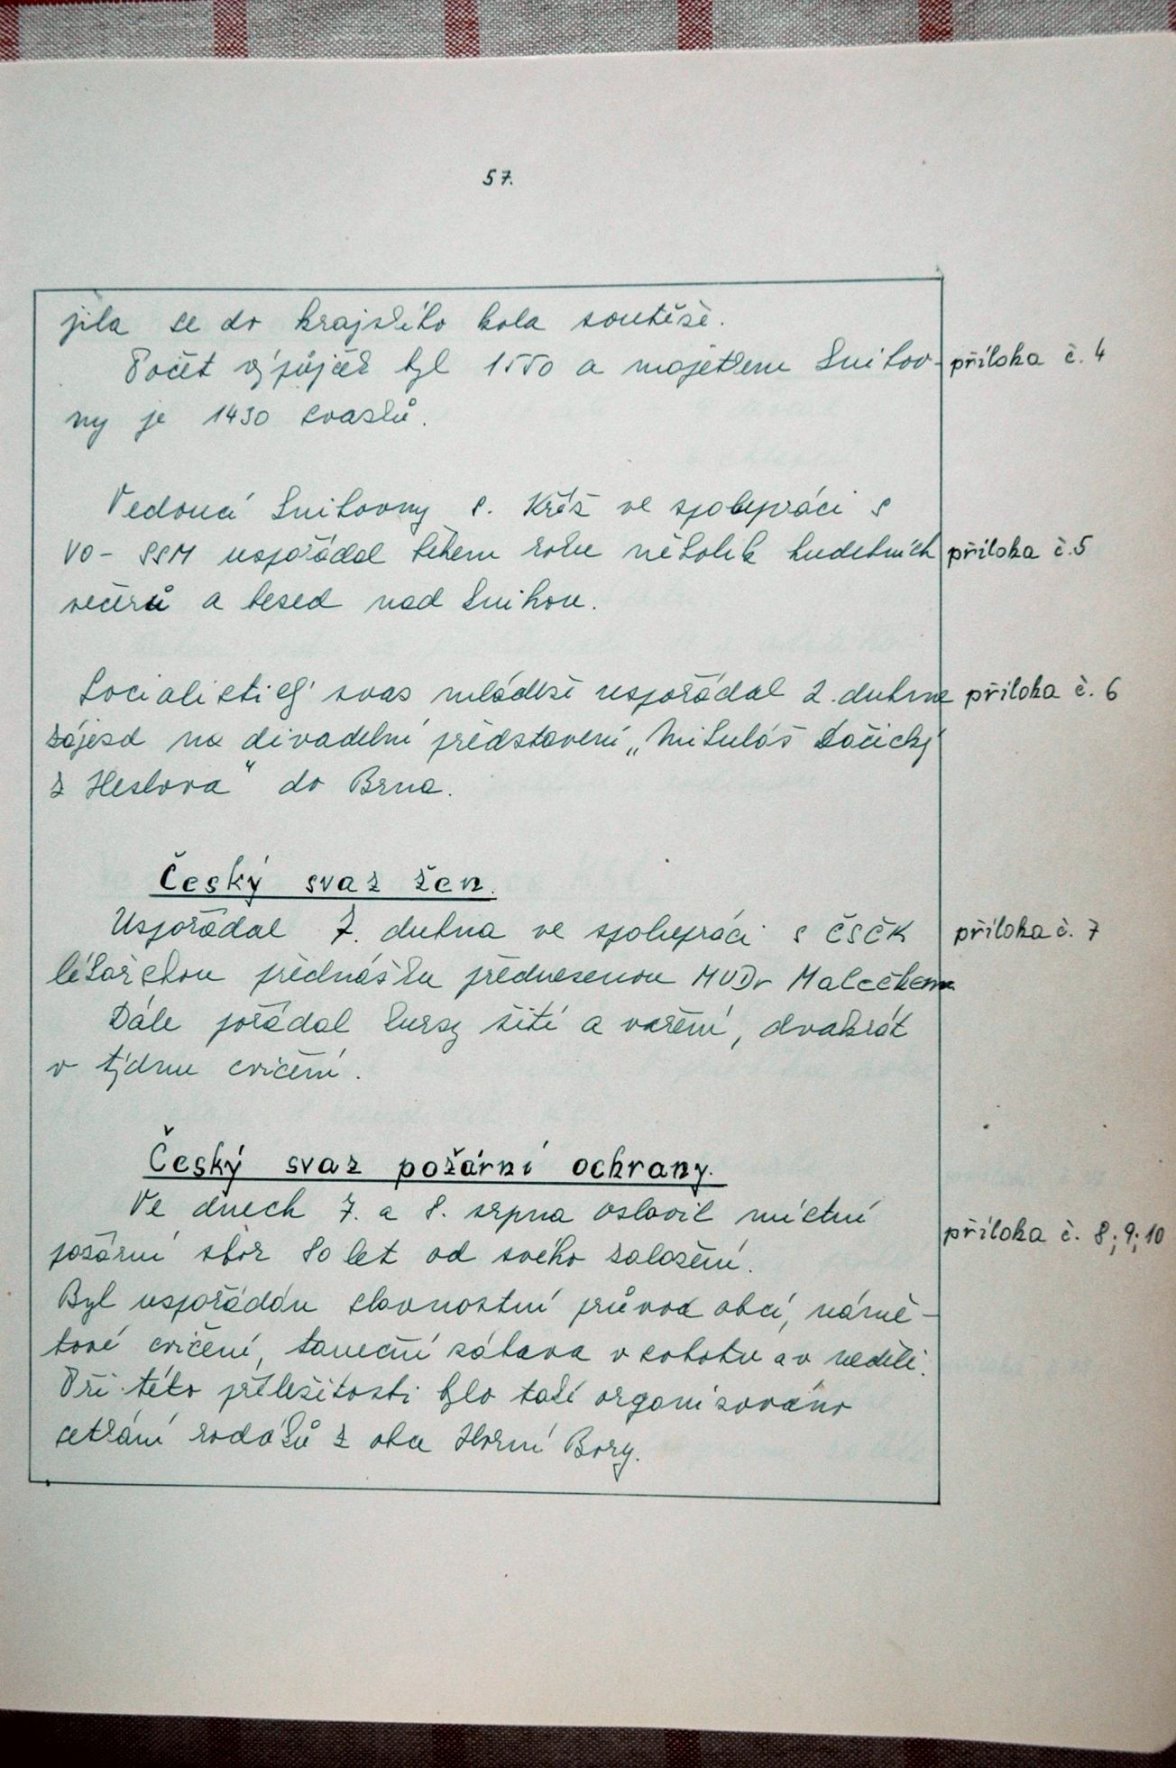 57.
jila se do krajského kola soutěže.
Počet výpůjček byl 1550 a majetkem knihov- příloha č. 4
ny je 1430 svazků.
Vedoucí knihovny s. Kříž ve spolupráci s
VO - SSM uspořádal během roku několik hudebních příloha č. 5
večerů a besed nad knihou.
Socialistický svaz mládeže uspořádal 2. dubna příloha č. 6
zájezd na divadelní představení „Mikuláš Dačický
z Heslova" do Brna.
Český svaz žen.
Uspořádal 7. dubna ve spolupráci s ČSČK příloha č. 7
lékařskou přednášku přednesenou MUDr Malečkem
Dále pořádal kursy šití a vaření, dvakrát
v týdnu cvičení.
Český svaz požární ochrany.
Ve dnech 7. a 8. srpna oslavil místní
požární sbor 80 let od svého založení. příloha č. 8; 9; 10
Byl uspořádán slavnostní průvod obcí, námě-
tové cvičení, taneční zábava v sobotu a v neděli.
Při této příležitosti bylo také organisováno
setkání rodáků z obce Horní Bory.